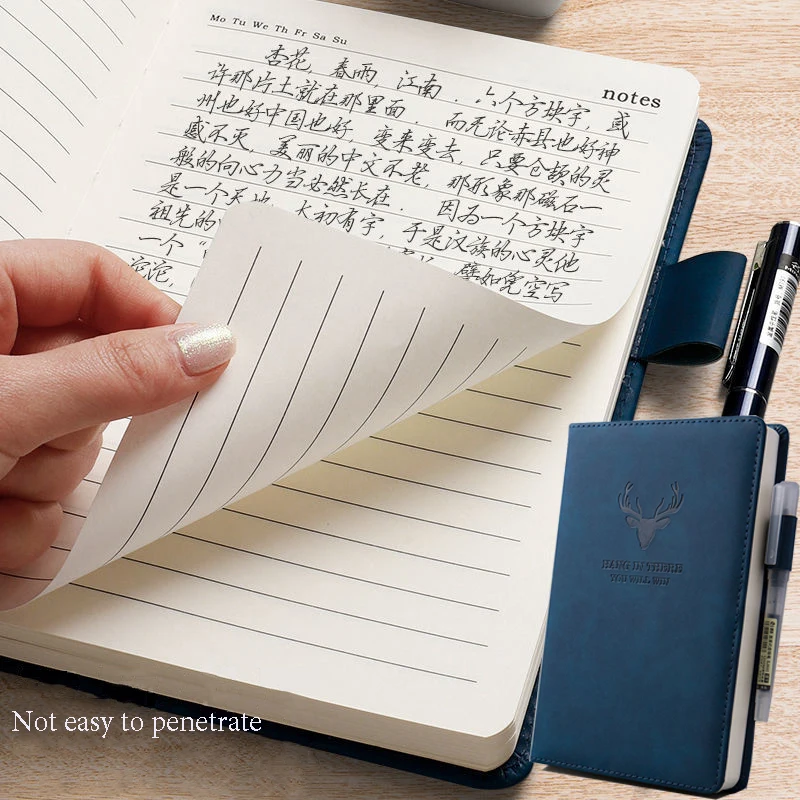 Mo Tu We Th Fr Sa Su
notes
杏花，春雨，江南．六个方块字，或
许那片土就在那里面．而无论赤县也好神
州也好中国也好，变来变去，只要仓颉的灵
感不灭，美丽的中文不老，那形象那磁石一
般的向心力当必然长在．因为一个方块字
是一个天地．太初有字，于是汉族的心灵他
祖先的
一个“
沱沱，譬如凭空写
HANG IN THERE
YOU WILL WIN
Not easy to penetrate